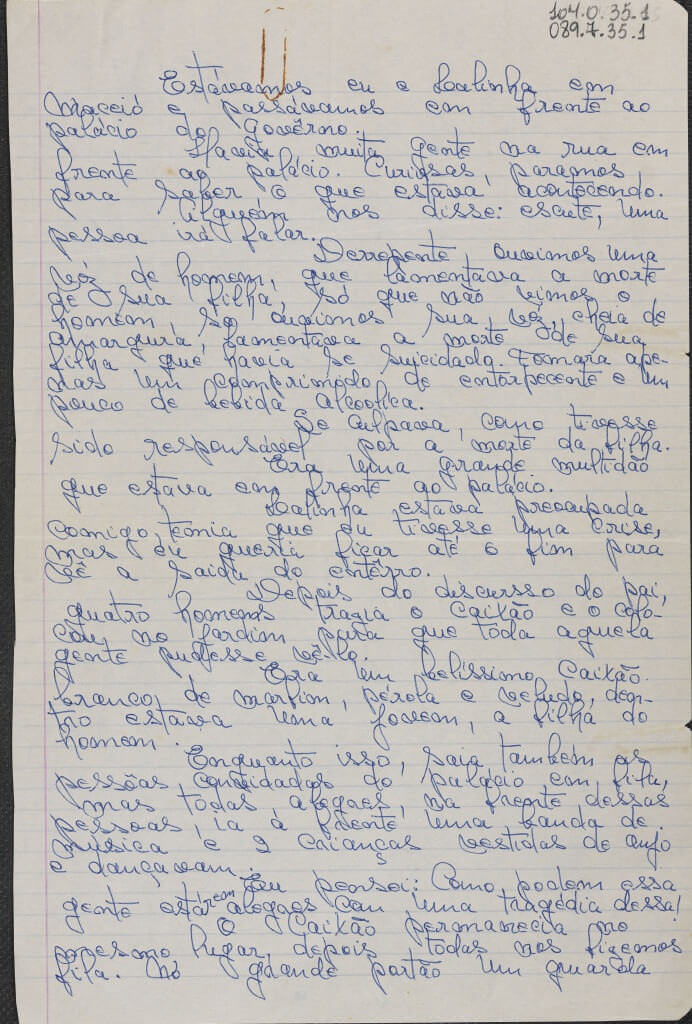 104.0.35.1
089.7.35.1
Estávamos eu e Loalinha em
Maceió e passávamos em frente ao
palácio do govêrno.
Havia muita gente na rua em
frente ao palácio. Curiosas, paramos
para saber o que estava acontecendo.
Alguém nos disse: escute, uma
pessoa irá falar.
Derrepente, ouvimos uma
vóz de homem, que lamentava a morte
de sua filha, só que não vimos o
homem, só ouvimos sua vóz, cheia de
amargura, lamentava a morte de sua
filha que havia se suicidado. Tomara ape-
nas um comprimodo de entorpecente e um
pouco de bebida alcoolica.
Se culpava, como tivesse
sido responsável por a morte da filha.
Era uma grande multidão
que estava em frente ao palácio.
Loalinha estava preocupada
comigo, temia que eu tivesse uma crise,
mas eu queria ficar até o fim para
vê a saida do enterro.
Depois do discursso do pai,
quatro homens trazia o caixão e o colo-
cou no jardim para que toda aquela
gente pudesse vê-lo.
Era um belissimo caixão
branco, de marfim, pérola e veludo, den-
tro estava uma jovem, a filha do
homem.
Enquanto isso, saia também as
pessõas convidadas do palacio em fila,
mas todas alegres, na frente dessas
pessoas, ia à frente uma banda de
musica e 2 crianças vestidas de anjo
e dançavam.
Eu pensei: Como podem essa
gente estárem alegres com uma tragédia dessa!
O caixão permanecia no
mesmo lugar, depois, todas nos fizemos
fila. No grande portão um guarda